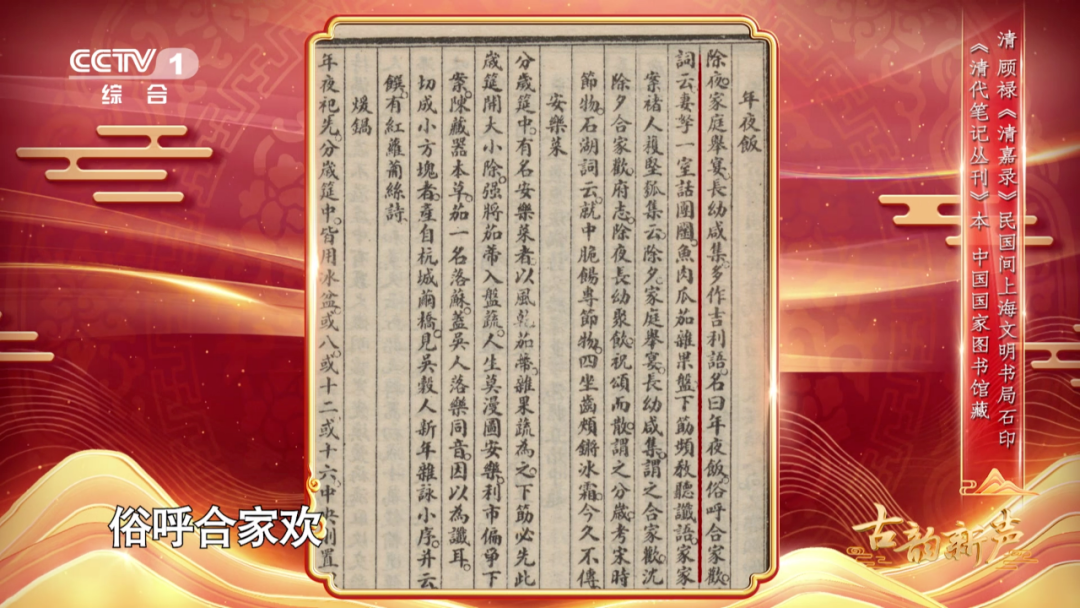 CCTV 1
综合
清 顾禄《清嘉录》民国间上海文明书局石印
《清代笔记丛刊》本 中国国家图书馆藏
年夜飯
除夜。家庭舉宴。長幼咸集。多作吉利語。名曰年夜飯。俗呼合家歡。
詞云。妻孥一室話團圞。魚肉瓜茄雜果盤。下筯頻教聽讖語。家家
案褚人穫堅瓠集云。除夕。家庭舉宴。長幼咸集。謂之合家歡。沈
除夕合家歡。府志。除夜長幼聚飲。祝頌而散。謂之分歲。考宋時
節物。石湖詞云。就中脆餳專節物。四坐齒頰鏘冰霜。今久不傳
安樂菜
分歲筵中。有名安樂菜者。以風乾茄蒂。雜果蔬為之。下筯必先此
歲筵開大小除。强將茄蒂入盤蔬。人生莫漫圖安樂。利市偏爭下
案。陳藏器本草。茄一名落蘇。蓋吳人落樂同音。因以為讖耳。
切成小方塊者。產自杭城繭橋。見吳穀人新年雜詠小序。并云
饌有紅蘿蔔絲詩。
煖鍋
年夜祀先。分歲筵中。皆用冰盆。或八。或十二。或十六。中央則置
俗呼合家欢
古韵新声